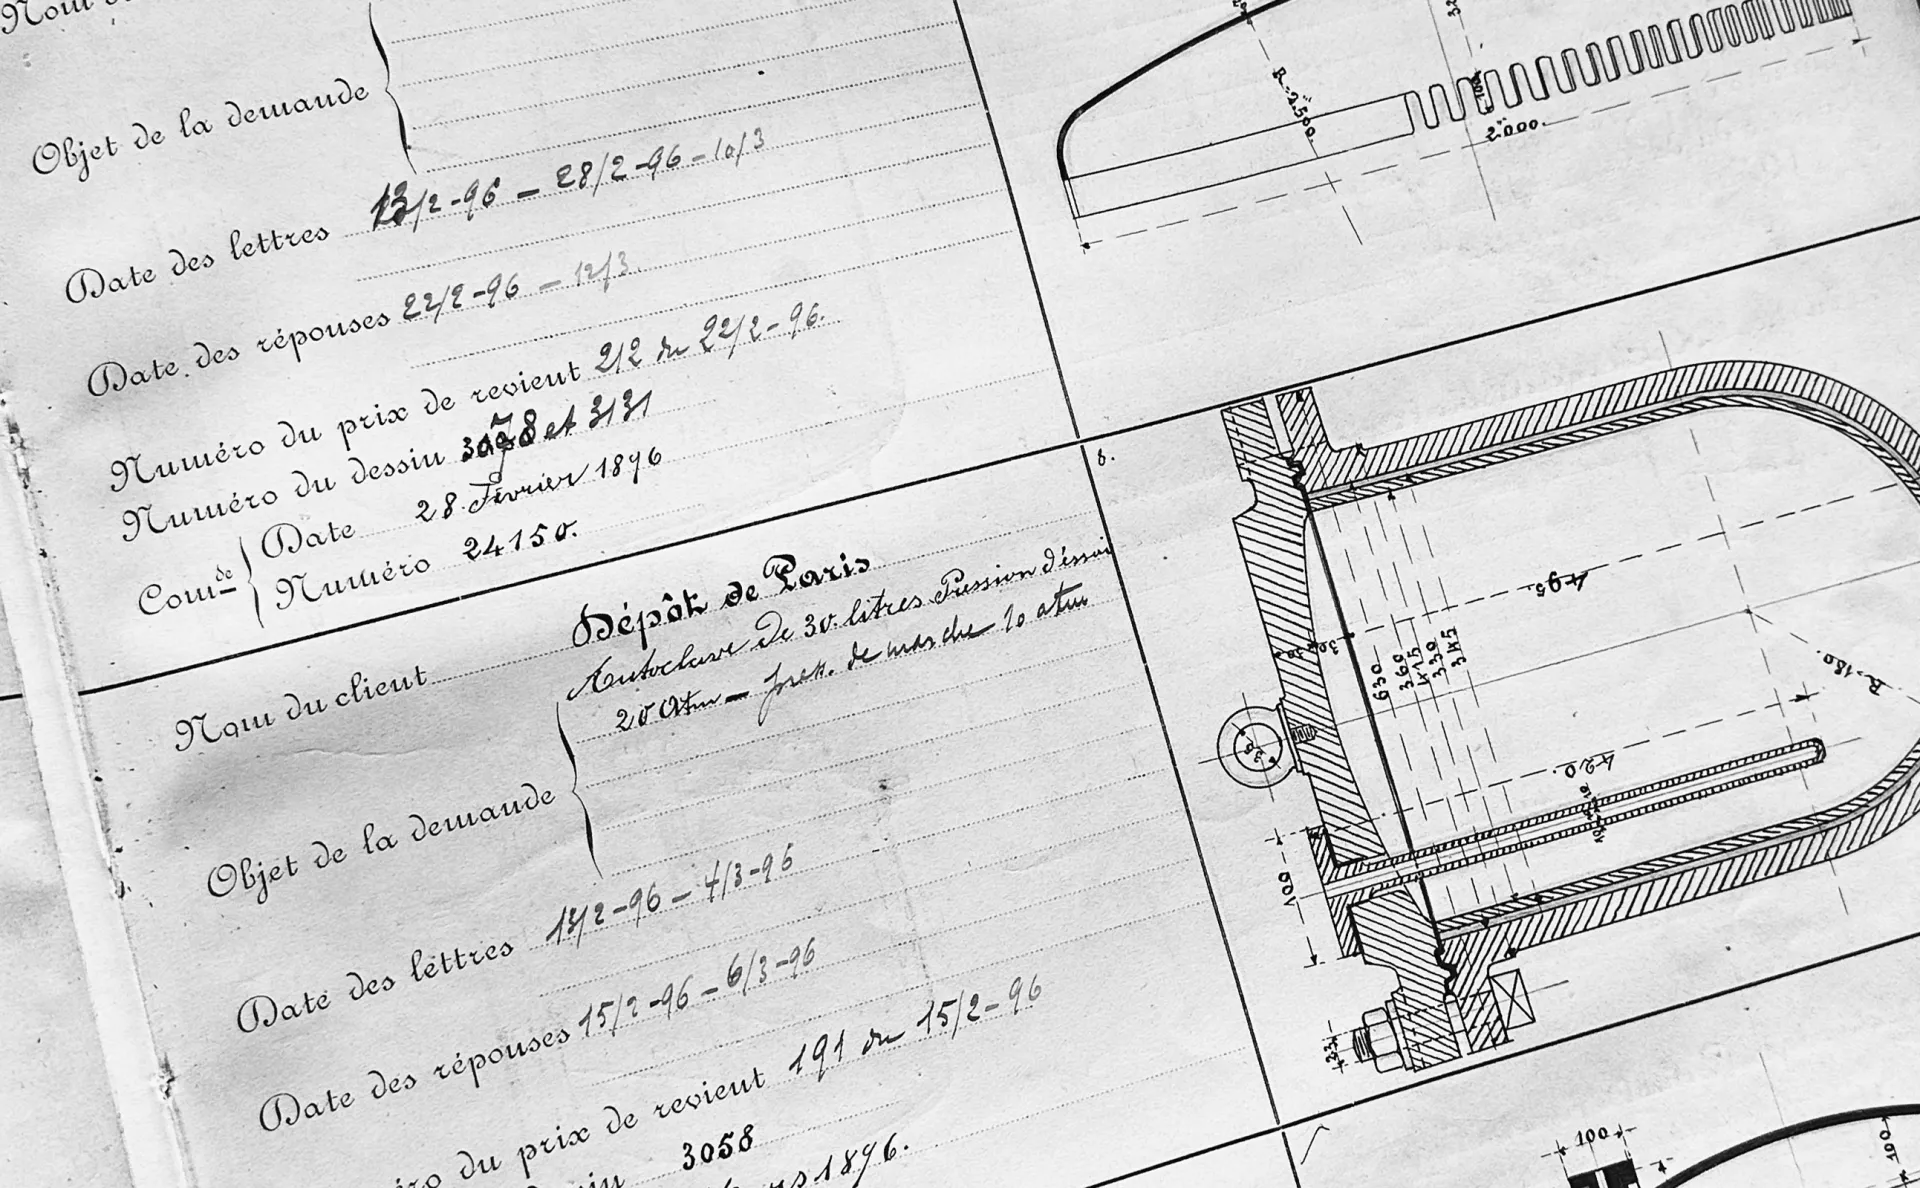 Objet de la demande
Date des lettres 13/2-96 - 28/2-96 - 10/3
Date des réponses 22/2-96 - 12/3.
Numéro du prix de revient 212 du 22/2-96.
Numéro du dessin 3078 et 3131
Com^de Date 28 Février 1896
Numéro 24150.
Nom du client Dépôt de Paris
Objet de la demande
Autoclave de 30 litres Pression d'éssai
20 Atm - pres. de marche 10 atm
Date des lettres 13/2-96 - 4/3-96
Date des réponses 15/2-96 - 6/3-96
du prix de revient 191 du 15/2-96
3058
1896.
R=2.500.
2.000.
6.
495.
30
630
360
415
330
345
R=180.
420.
35
100
23
100
100